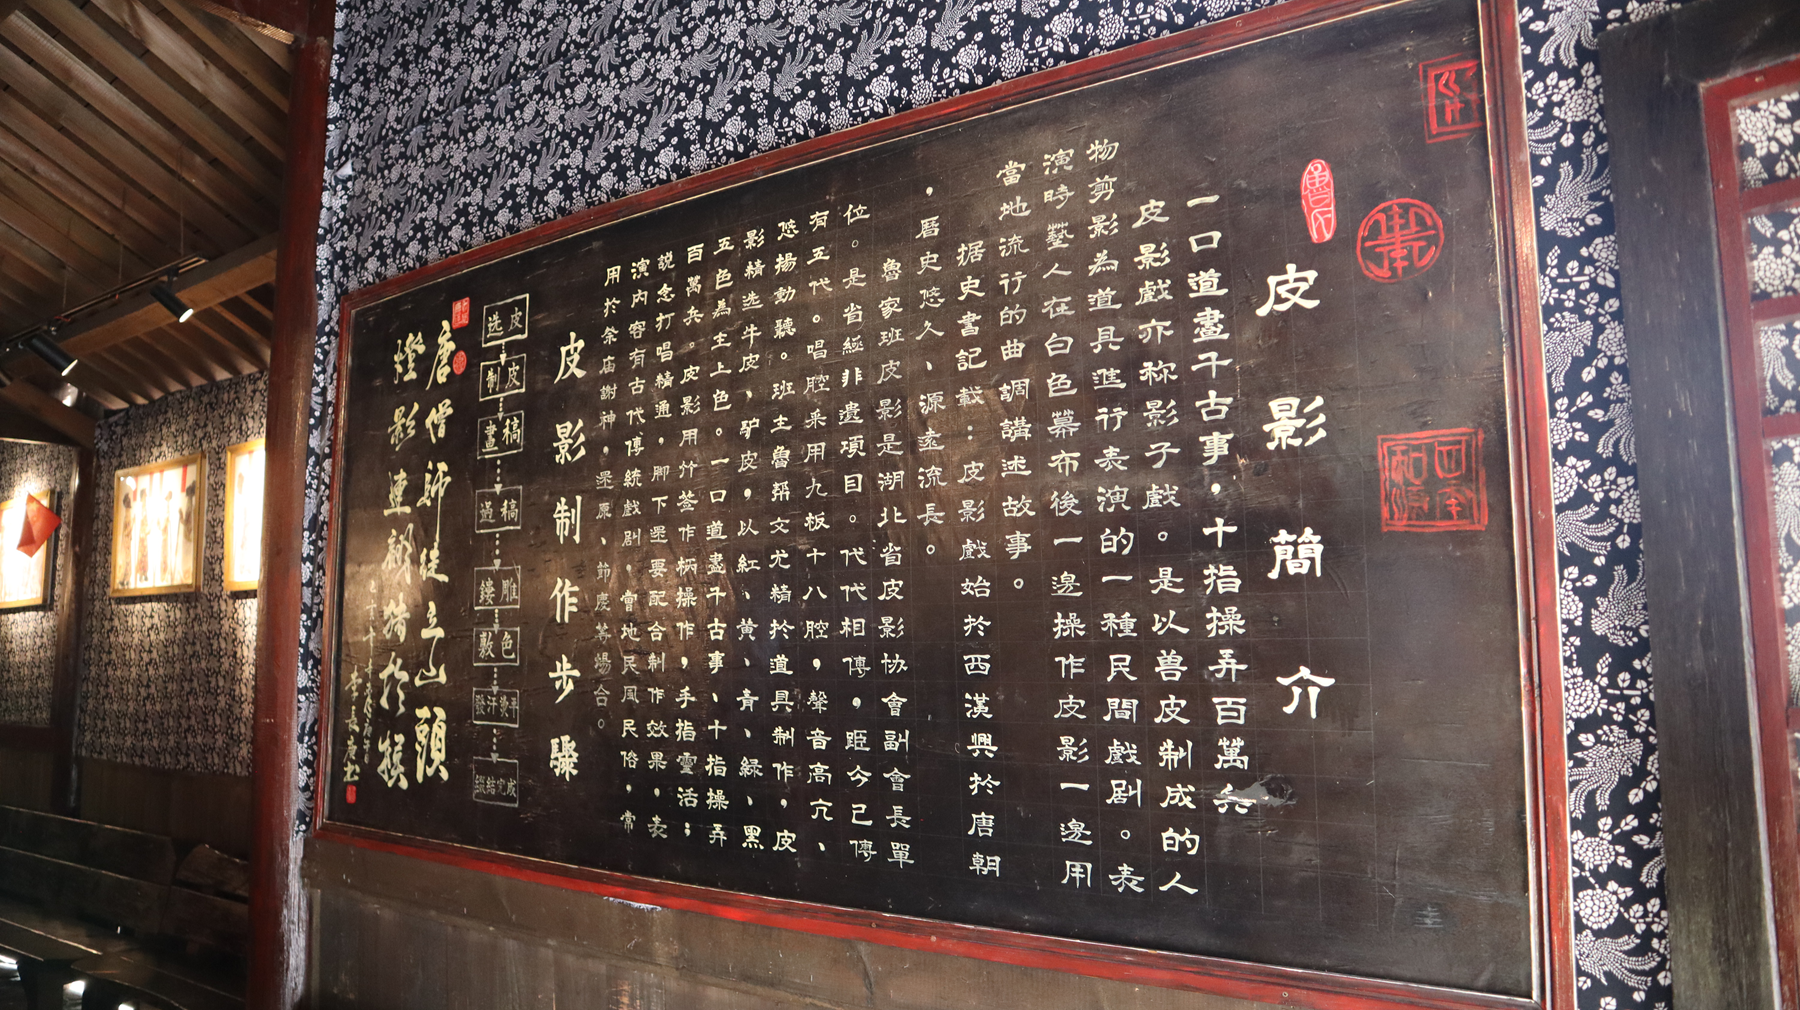 皮影簡介
一口道盡千古事，十指操弄百萬兵
皮影戲亦称影子戲。是以兽皮制成的人
物剪影為道具進行表演的一種民間戲剧。表
演時藝人在白色幕布後一邊操作皮影一邊用
當地流行的曲調講述故事。
据史書記載：皮影戲始於西漢興於唐朝
，曆史悠久、源遠流長。
魯家班皮影是湖北省皮影协會副會長單
位。是省級非遺項目。代代相傳，距今已傳
有五代。唱腔采用九板十八腔，聲音高亢、
悠揚動聽。班主魯 文尤精於道具制作，皮
影精选牛皮，驴皮，以紅、黄、青、緑、黑
五色為主上色。一口道盡千古事、十指操弄
百萬兵。皮影用竹签作柄操作，手指靈活；
説念打唱精通，脚下還要配合制作效果，表
演内容有古代傳統戲剧，當地民風民俗，常
用於祭庙謝神，還原、節慶等場合。
皮影制作步驟
选皮
制皮
畫稿
過稿
鏤雕
敷色
發汗燙平
綴结完成
唐僧師徒立山頭
燈影連翩 於猴
李長庚书